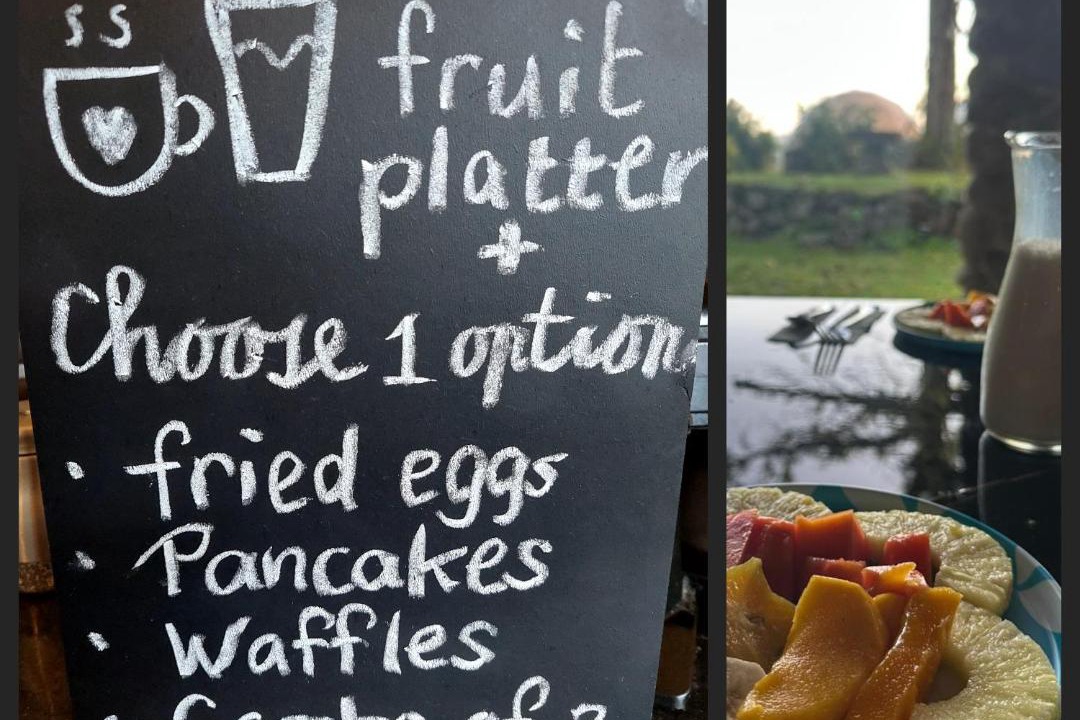 fruit
platter
+
Choose 1 option
• fried eggs
• Pancakes
• Waffles